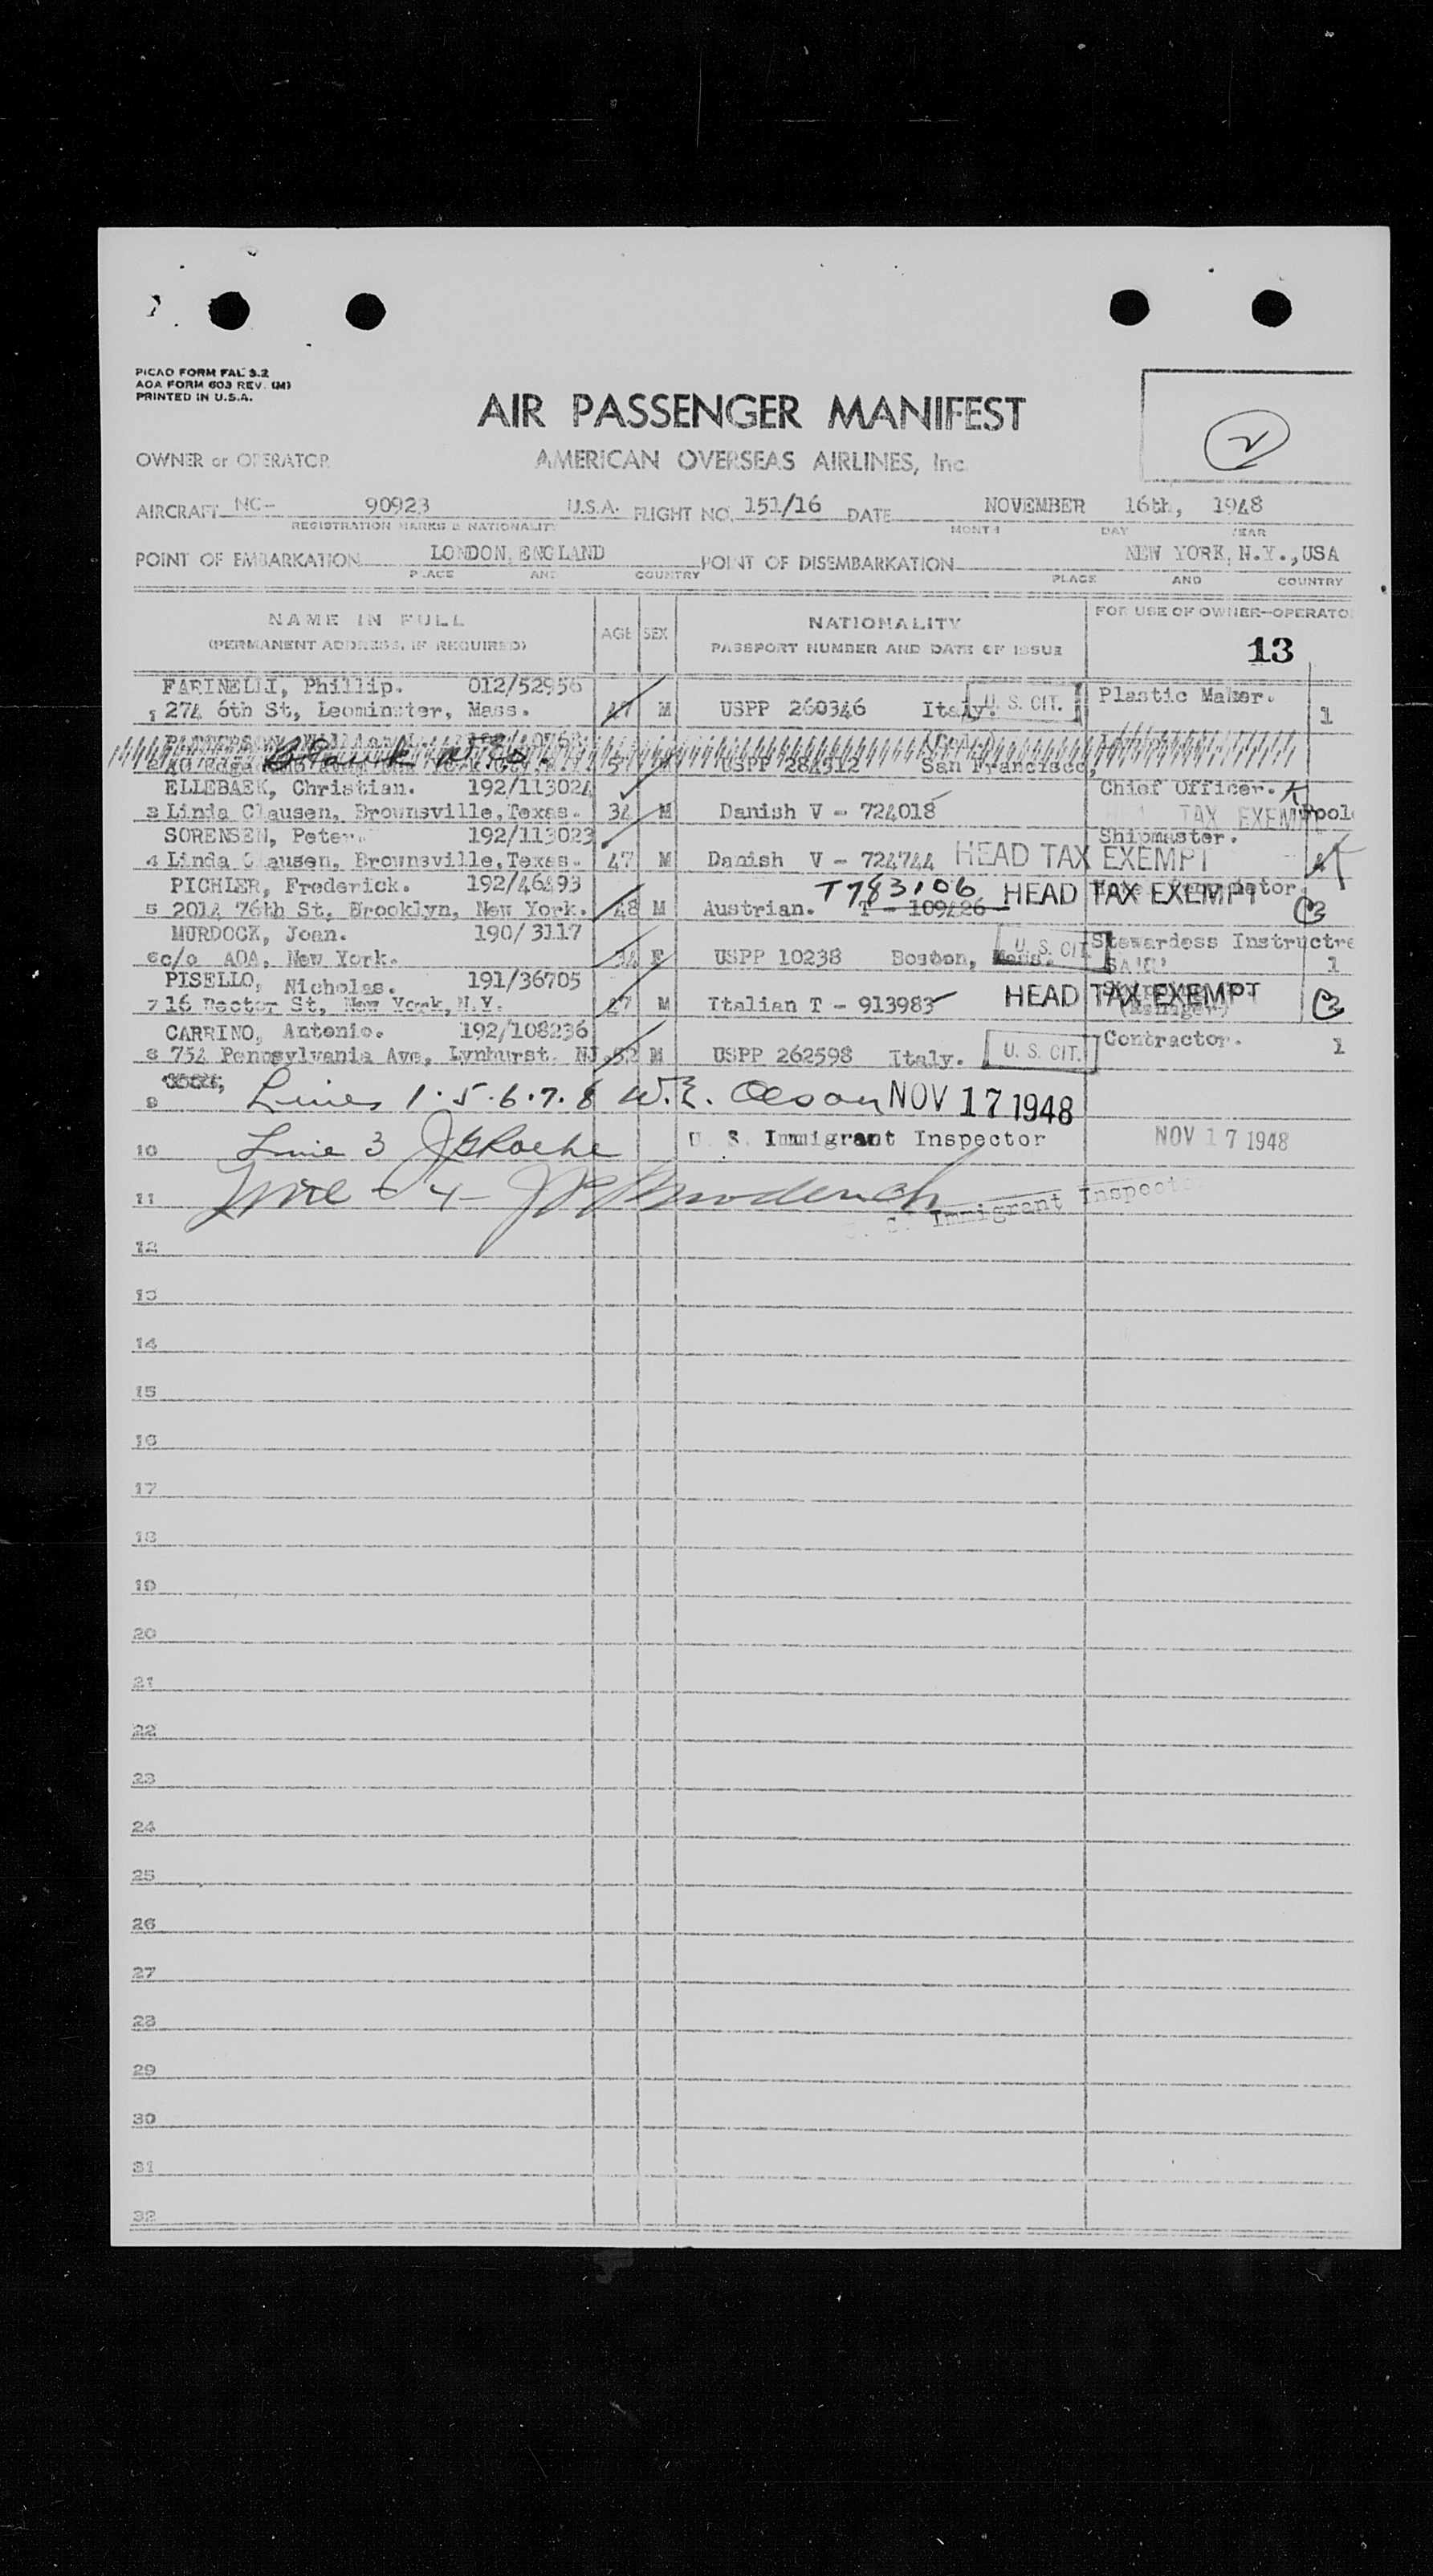 PICAO FORM FAL 3.2
AOA FORM 603 REV. (M)
PRINTED IN U.S.A.
AIR PASSENGER MANIFEST
2
OWNER or OPERATOR AMERICAN OVERSEAS AIRLINES, Inc.
AIRCRAFT NC- 90923 U.S.A. FLIGHT NO. 151/16 DATE NOVEMBER 16th, 1948
REGISTRATION MARKS & NATIONALITY MONTH DAY YEAR
POINT OF EMBARKATION LONDON, ENGLAND POINT OF DISEMBARKATION NEW YORK, N.Y., USA
PLACE AND COUNTRY PLACE AND COUNTRY
NAME IN FULL AGE SEX NATIONALITY FOR USE OF OWNER-OPERATO
(PERMANENT ADDRESS, IF REQUIRED) PASSPORT NUMBER AND DATE OF ISSUE 13
FARINELLI, Phillip. 012/52956 Plastic Maker.
1 274 6th St, Leominster, Mass. 47 M USPP 260346 Italy. U. S. CIT. 1
Blank
2 USPP 284912 San Francisco,
ELLEBAEK, Christian. 192/113024 Chief Officer.
3 Linda Clausen, Brownsville, Texas. 34 M Danish V - 724018 TAX EXEM
SORENSEN, Peter. 192/113023 Shipmaster.
4 Linda Clausen, Brownsville, Texas. 47 M Danish V - 724744 HEAD TAX EXEMPT
PICHLER, Frederick. 192/46493 T783106 HEAD TAX EXEMPT
5 2014 76th St, Brooklyn, New York. 48 M Austrian. T - 109426
MURDOCK, Joan. 190/3117 Stewardess Instructre
6 c/o AOA, New York. 34 F USPP 10238 Boston, Mass. U. S. CIT. 1
PISELLO, Nicholas. 191/36705 HEAD TAX EXEMPT
7 16 Rector St, New York, N.Y. 47 M Italian T - 913983 (Manager)
CARRINO, Antonio. 192/108236 Contractor.
8 754 Pennsylvania Ave, Lynhurst, NJ. 52 M USPP 262598 Italy. U. S. CIT. 1
9 Lines 1.5.6.7.8 W.E. Olson NOV 17 1948
10 Line 3 U. S. Immigrant Inspector NOV 17 1948
11 Line - 4 - Immigrant Inspecto
12
13
14
15
16
17
18
19
20
21
22
23
24
25
26
27
28
29
30
31
32